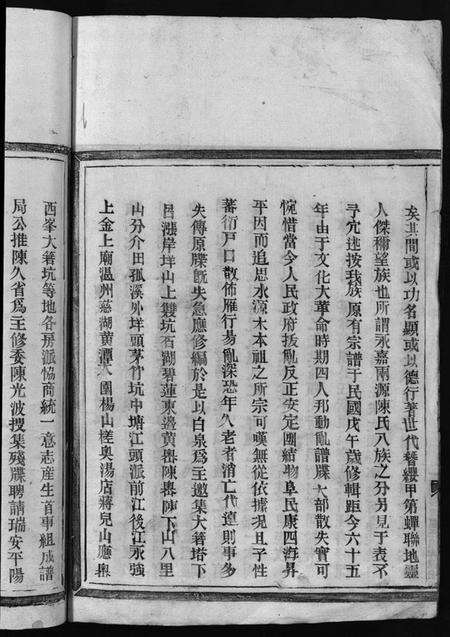 矣其間或以功名顯或以德行著世代簪纓甲第蟬聯地靈
人傑稱望族也所謂永嘉兩源陳氏八族之分另見于表不
予冗述按我族原有宗譜于民國戊午歲修輯距今六十五
年由于文化大革命時期四人邦動亂譜牒大部散失實可
惋惜當今人民政府拔亂反正安定團結物阜民康四海昇
平因而追思水源木本祖之所宗可嘆無從依據況且子性
蕃衍戶口散佈雁行易亂深恐年久老者消亡代遠則事多
失傳原牒既失急應修編於是以白泉為主邀集大箬塔下
呂漈岸垟山上雙坑石湖碧蓮東邊黄嶴陳嶴陳下山八里
山分介田孤溪外垟頭茅竹坑中塘江頭派前江後江永強
上金上廟温州慈湖黄潭八團楊山槎奥湯店蔣兒山廳嶴
西峯大箬坑等地各房派協商統一意志産生首事組成譜
局公推陳久省為主修委陳光波搜集殘牒聘請瑞安平陽